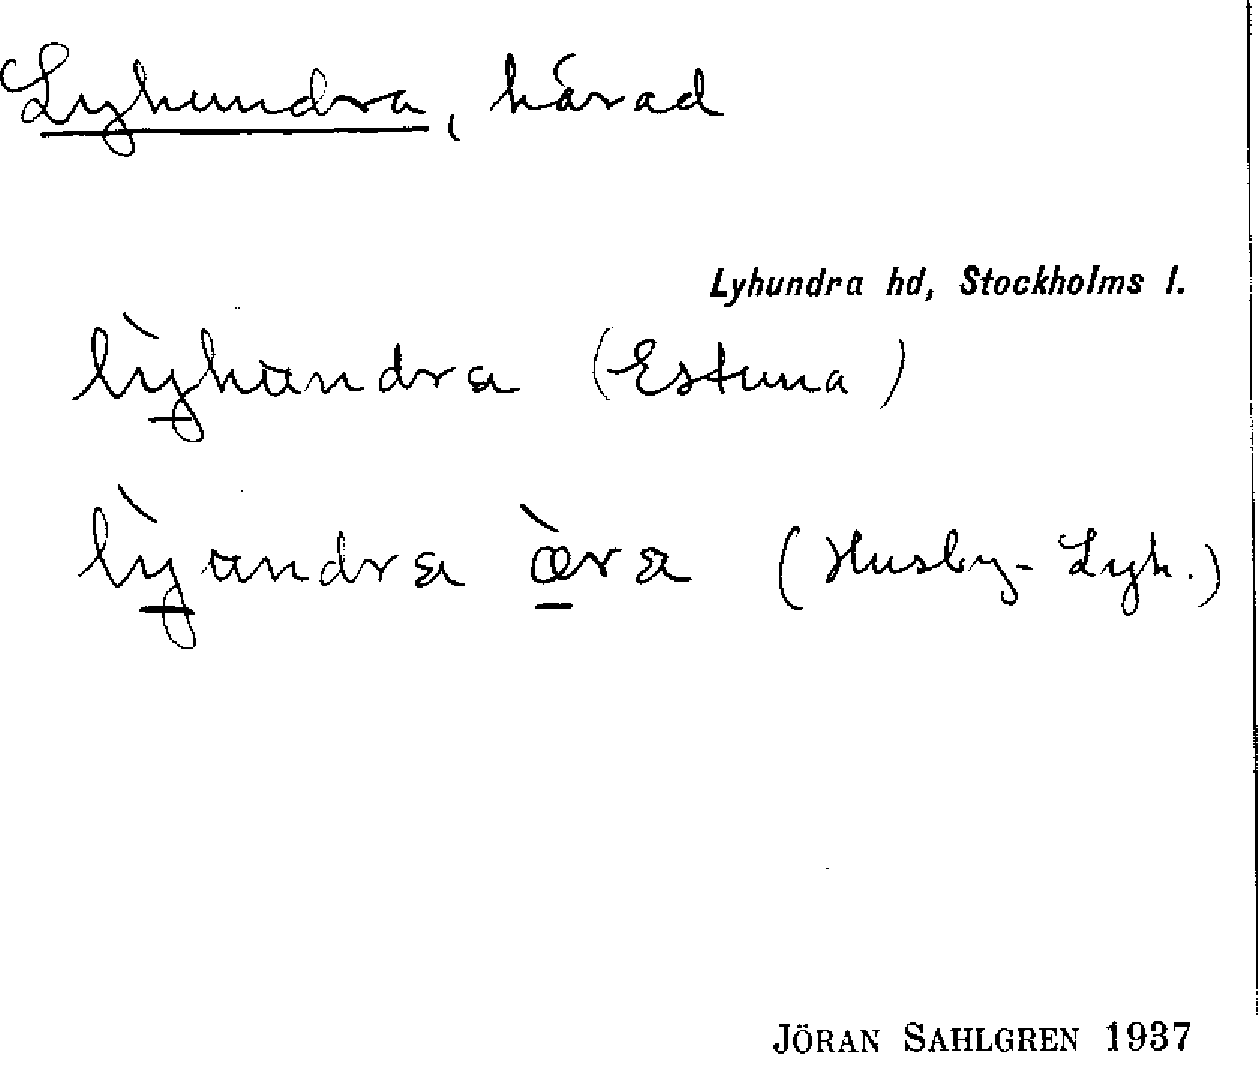 Lyhundra, härad
Lyhundra hd, Stockholms l.
lỳhundra (Estuna)
lỳundra æ̀ra (Husby-Lyh.)
JÖRAN SAHLGREN 1937